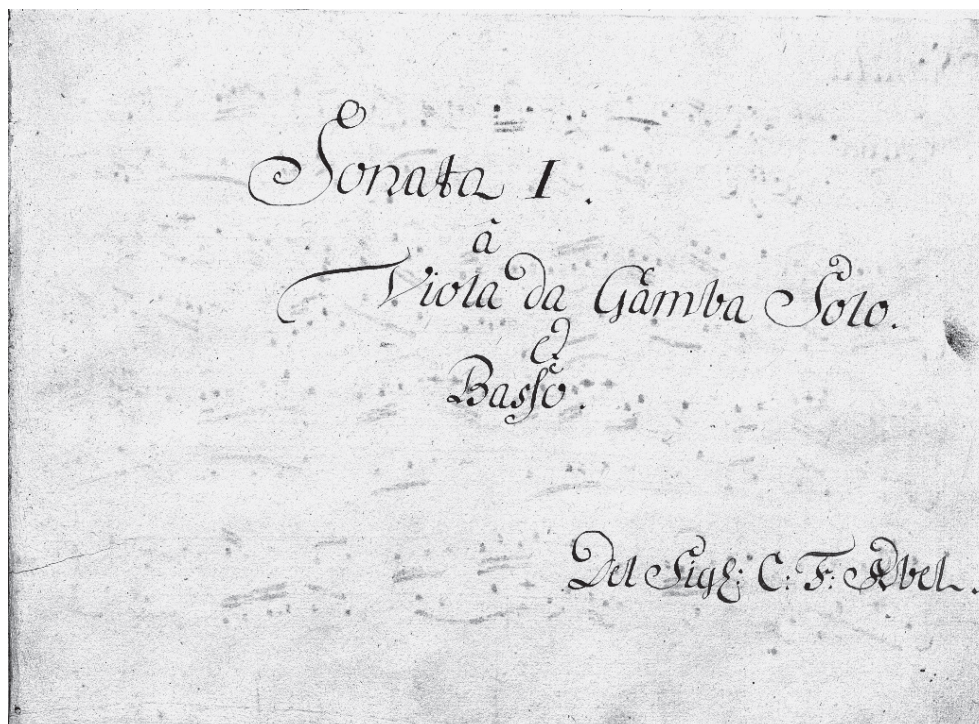 Sonata I.
â
Viola da Gamba Solo.
e
Basso.
Del Sigr: C: F: Abel.